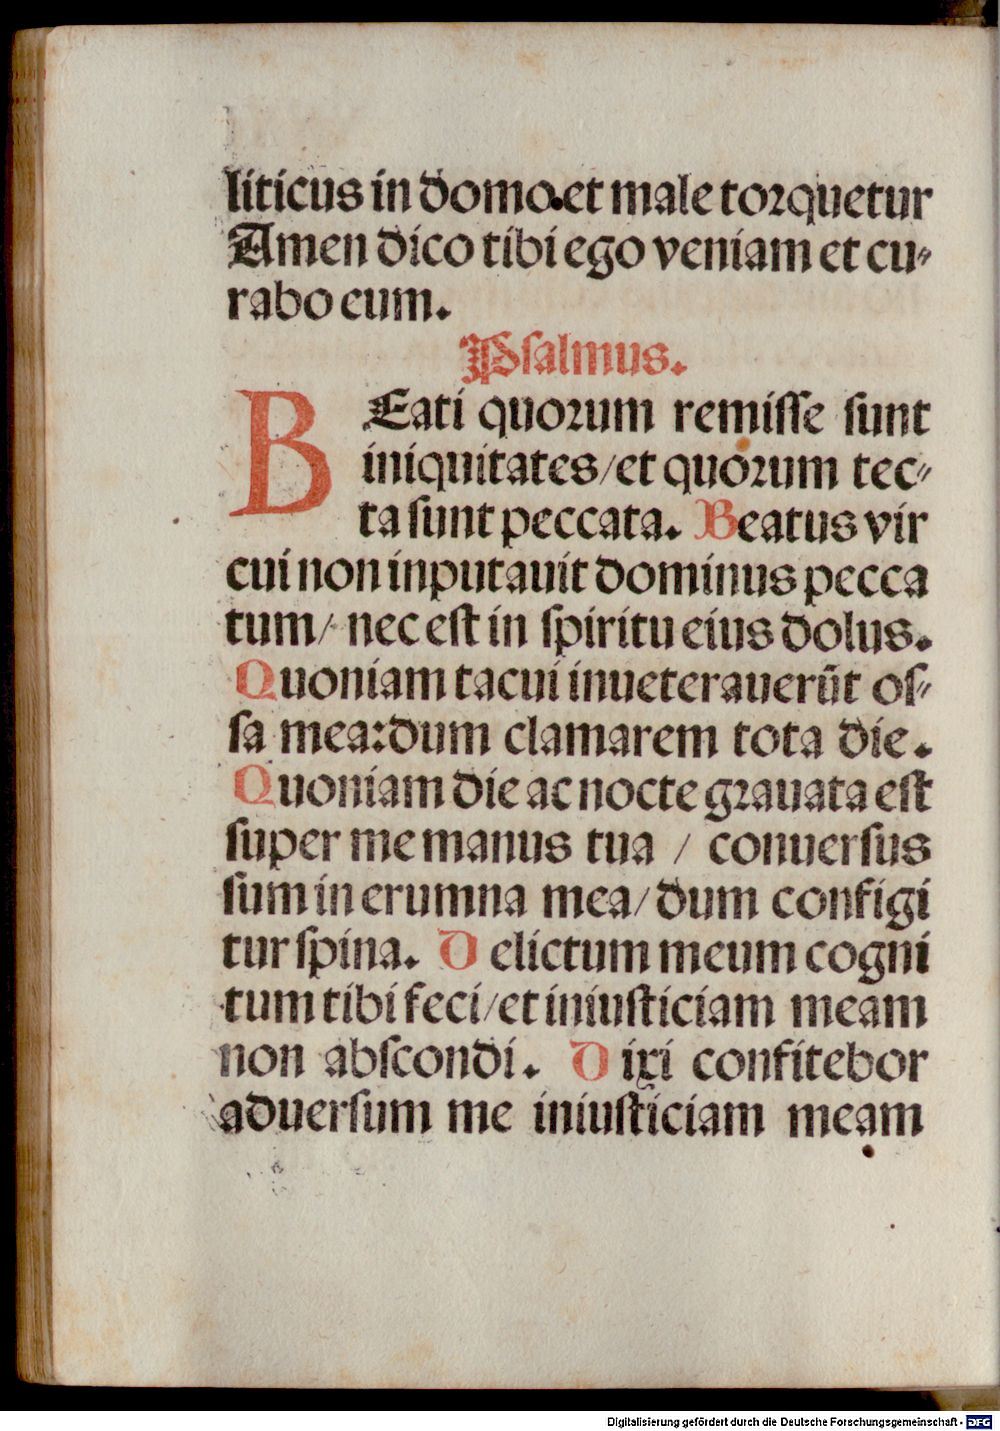 liticus in domo.et male torquetur
Amen dico tibi ego veniam et cu⸗
rabo eum.
Psalmus.
BEati quorum remisse sunt
iniquitates/et quorum tec⸗
ta sunt peccata. Beatus vir
cui non inputauit dominus pecca
tum/ nec est in spiritu eius dolus.
Quoniam tacui inueterauerūt os⸗
sa mea:dum clamarem tota die.
Quoniam die ac nocte grauata est
super me manus tua / conuersus
sum in erumna mea/dum configi
tur spina. Delictum meum cogni
tum tibi feci/et iniusticiam meam
non abscondi. Dixi confitebor
aduersum me iniusticiam meam
Digitalisierung gefördert durch die Deutsche Forschungsgemeinschaft - DFG